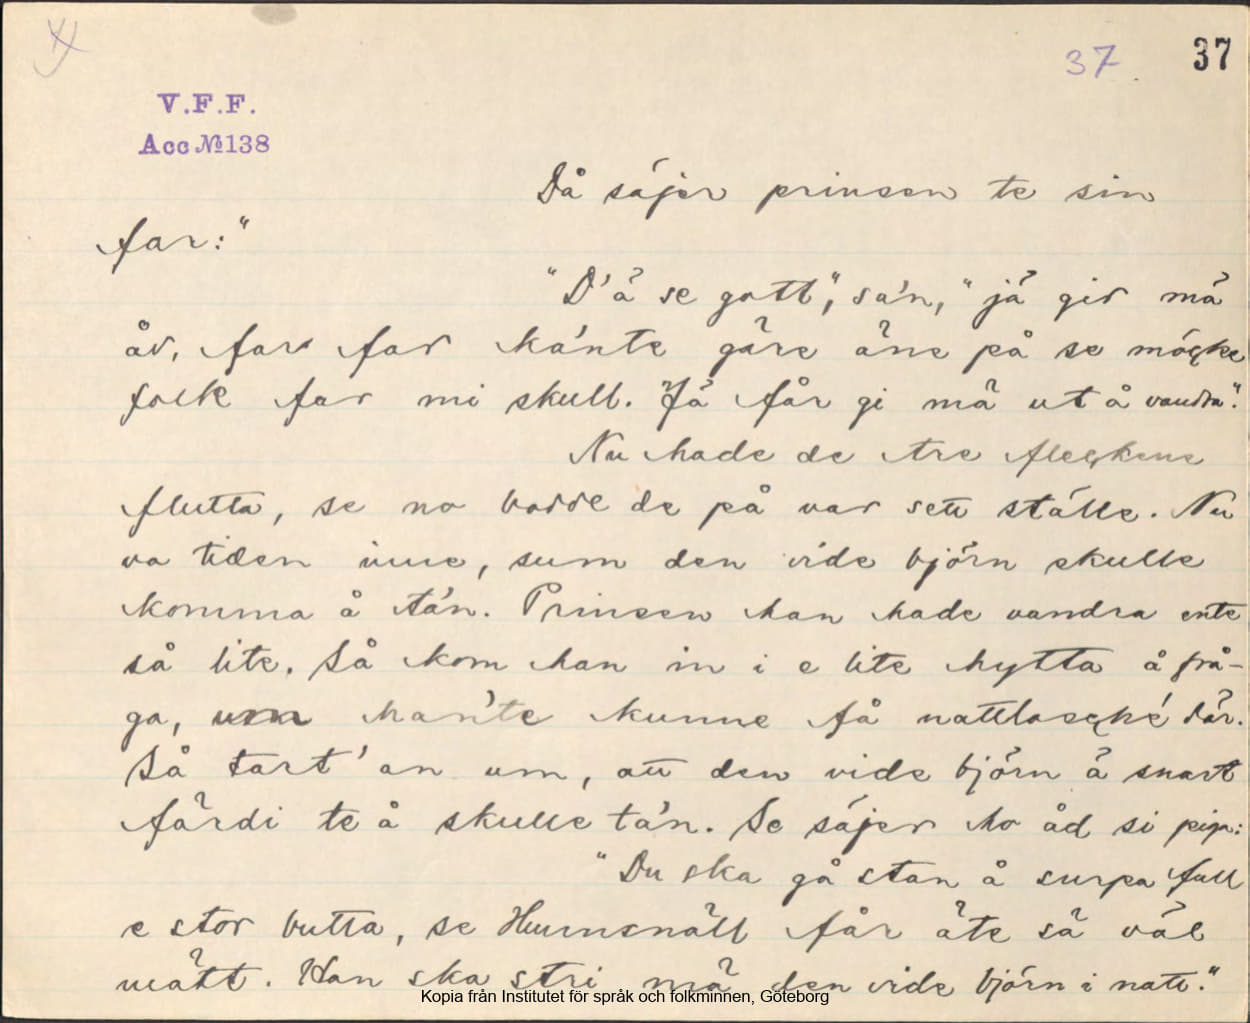 37 37
V.F.F.
Acc №138
Då säjer prinsen te sin
far:"
"D'ä se gott", sa'n, "jä gir mä
åv, fars far ka'nte gäre äne på se möcke
folk far mi skull. Jä får gi mä ut å vandra".
Nu hade de tre fleckene
flutta, se no bodde de på var sett ställe. Nu
va tiden inne, sum den vide björn skulle
komma å ta'n. Prinsen han hade vandra ente
så lite. Så kom han in i e lite hytta å frå-
ga, um han'te kunne få nattloscké där.
Så tart'an um, att den vide björn ä snart
färdi te å skulle ta'n. Se säjer ho åd si piga:
"Du ska gå stan å surpa full
e stor butta, se Humsnäll får äte sä väl
mätt. Han ska stri mä den vide björn i natt."
Kopia från Institutet för språk och folkminnen, Göteborg